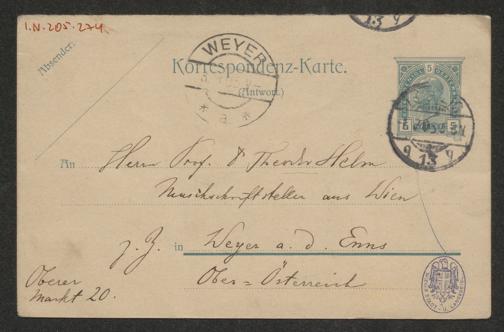 I.N. 205.274
Absender:
WEYER
a
Korrespondenz-Karte.
(Antwort.)
5
5 5
9 13 V
13 V
An Herrn Prof. Dr Theodor Helm
Musikschriftsteller aus Wien
z. Z. in Weyer a. d. Enns
Ober=Österreich
Oberer
Markt 20.